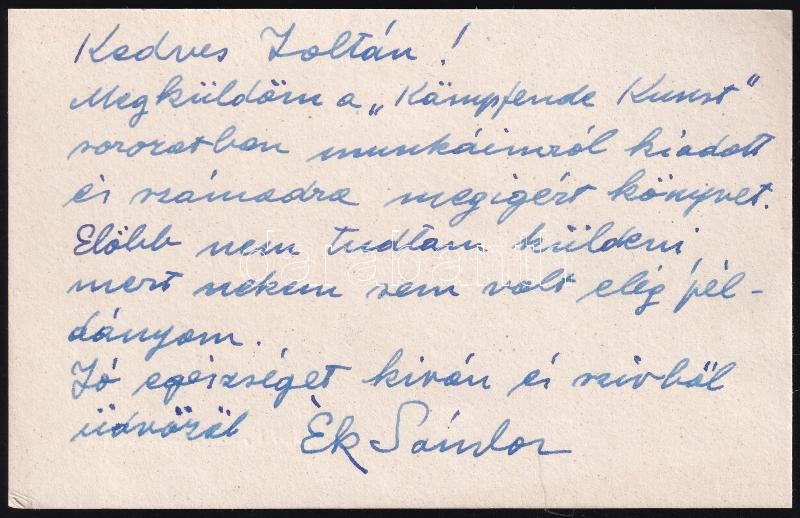 Kedves Zoltán!
Megküldöm a „Kämpfende Kunst"
sorozatban munkáimról kiadott
és számodra megigért könyvet.
Előbb nem tudtam küldeni,
mert nekem sem volt elég pél-
dányom.
Jó egészséget kiván és szivből
üdvözöl Ék Sándor
darabanth